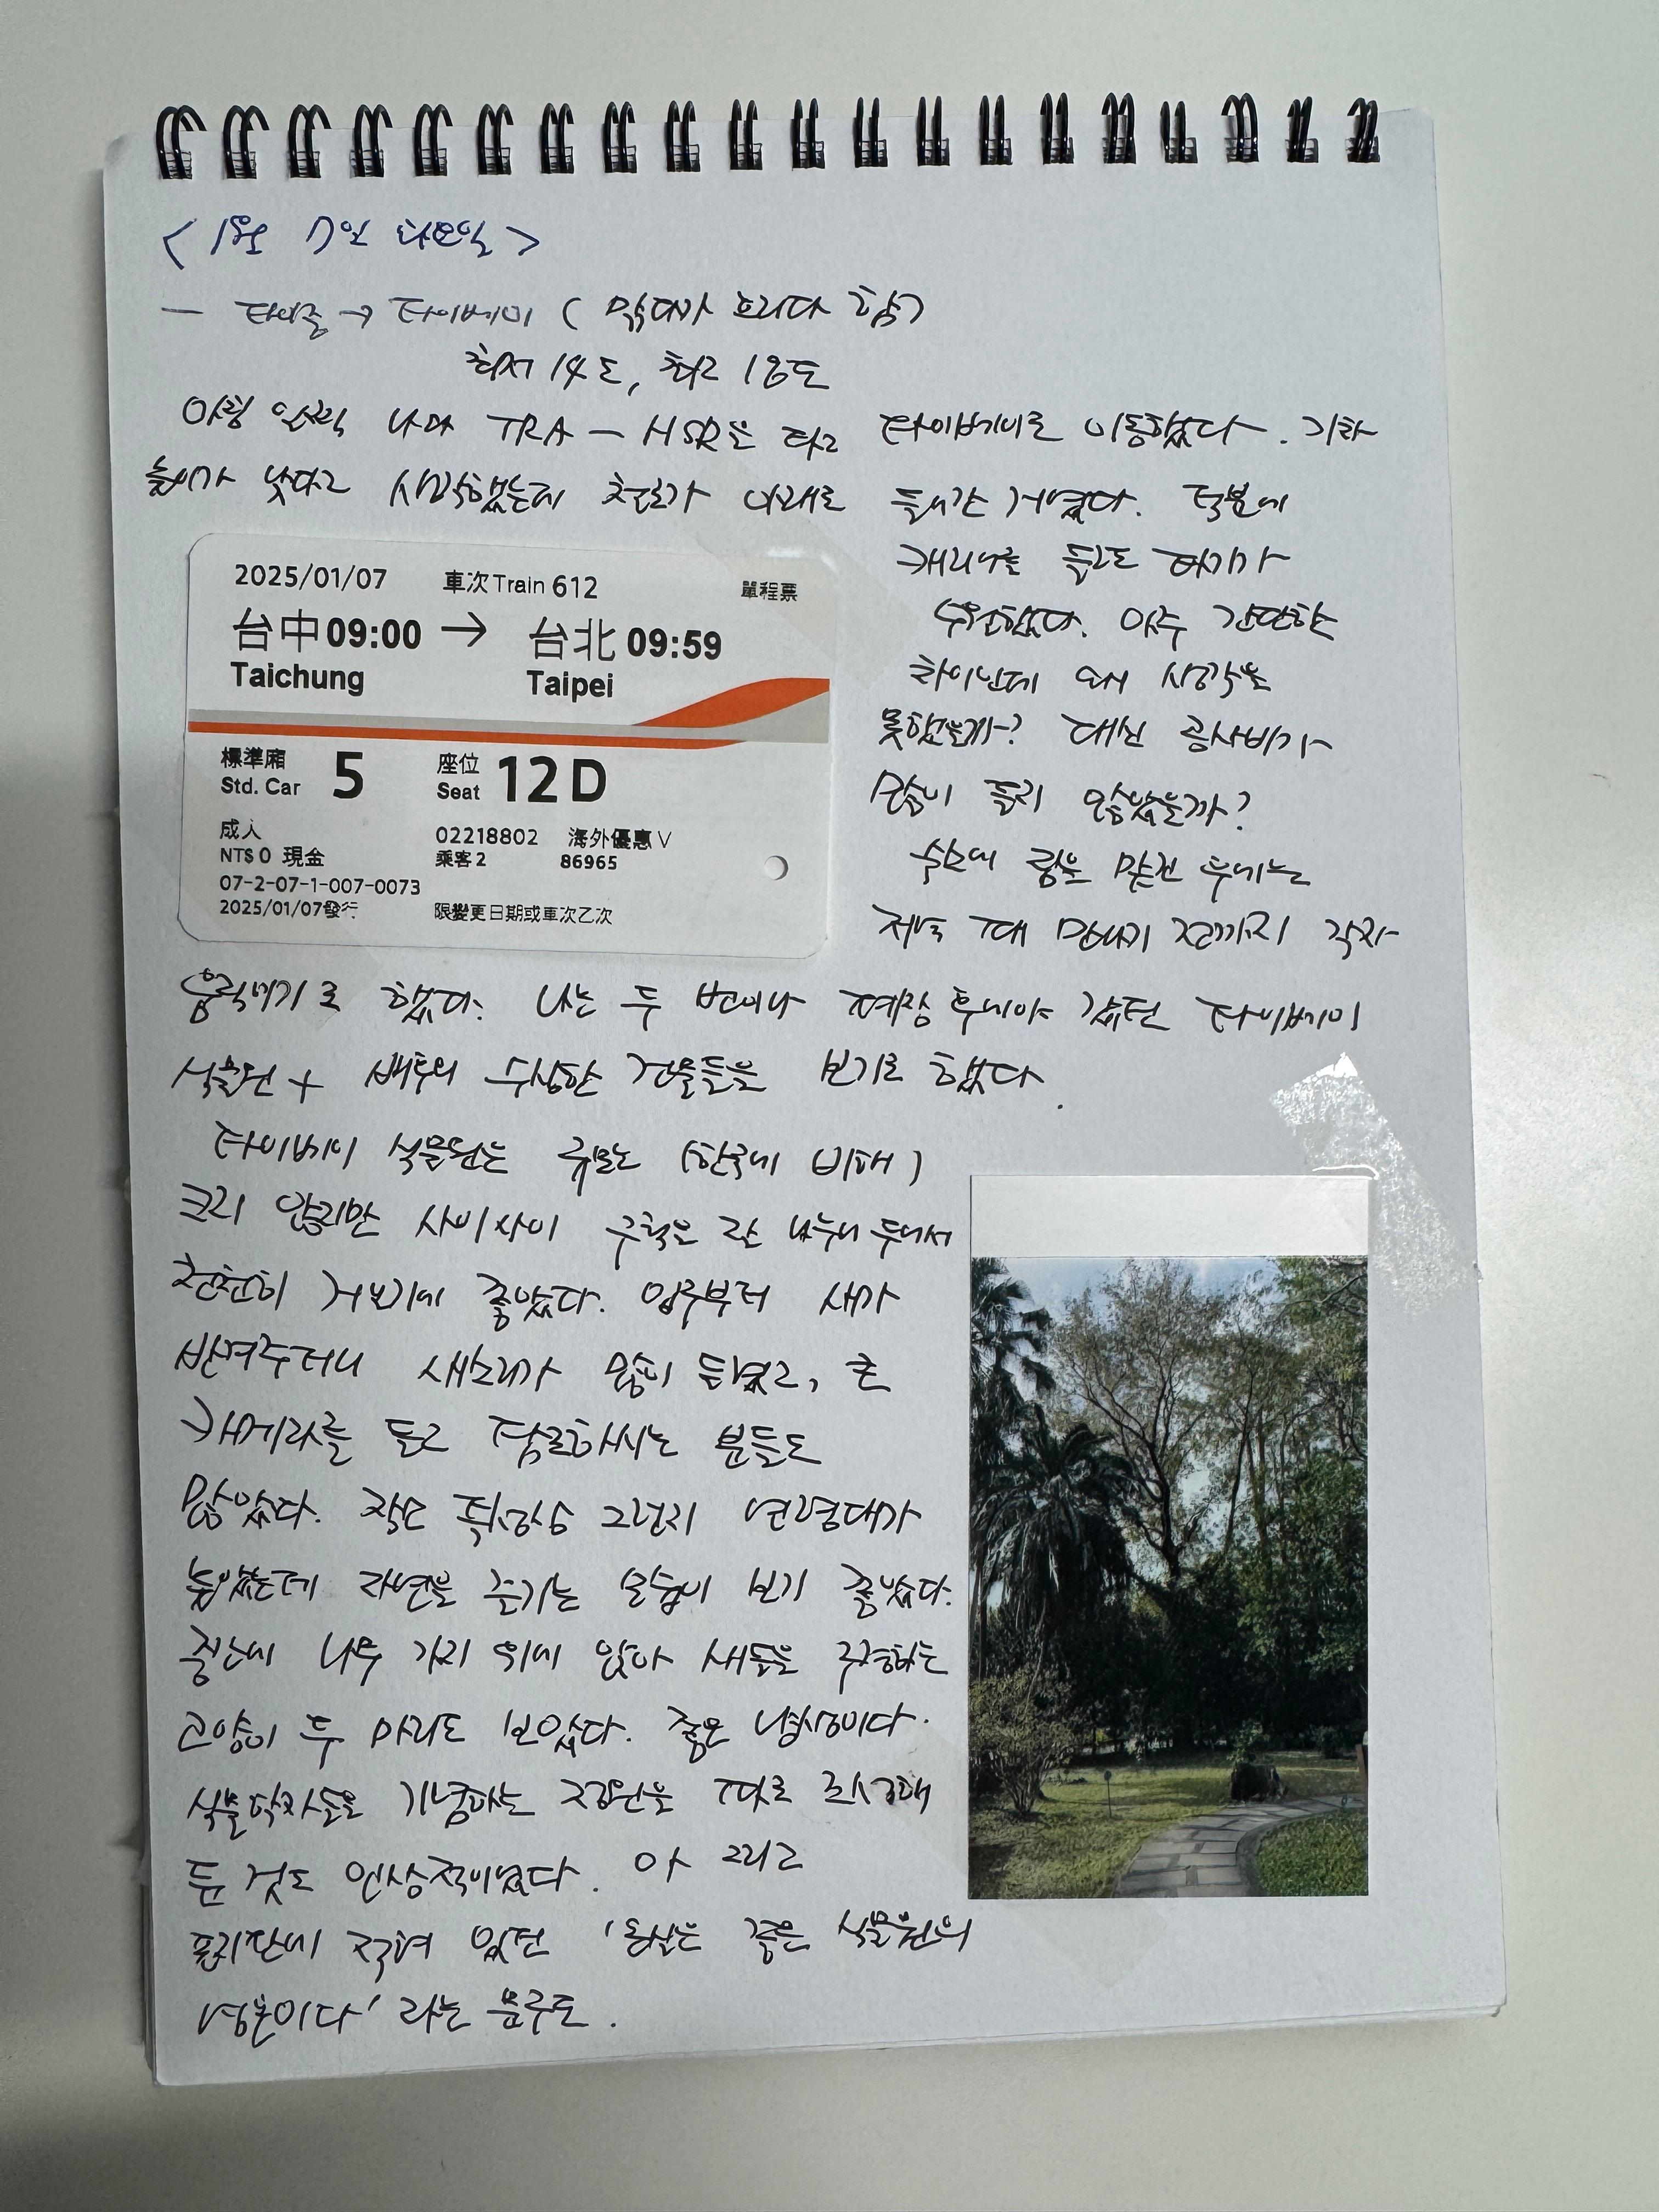 <1월 7일 화요일>
— 타이중 → 타이베이 ( 맑다가 흐리다 함)
최저 14도, 최고 18도
아침 일찍 나와 TRA — HSR을 타고 타이베이로 이동했다. 기차
높이가 낮다고 생각했는데 철로가 아래로 들어간 거였다. 덕분에
2025/01/07 車次Train 612 單程票
台中09:00 → 台北 09:59
Taichung Taipei
標準廂 Std. Car 5 座位 Seat 12D
成人 02218802 海外優惠V
NT$ 0 現金 乘客2 86965
07-2-07-1-007-0073
2025/01/07發行 限變更日期或車次乙次
캐리어를 들고도 타기가
수월했다. 아주 간단한
차이인데 왜 생각을
못했을까? 대신 공사비가
많이 들지 않았을까?
숙소에 짐을 맡긴 후에는
저녁 때 만나기 전까지 각자
움직이기로 했다. 나는 두 번이나 폐장 후에야 갔던 타이베이
식물원 + 베투의 수상한 건물들을 보기로 했다.
타이베이 식물원은 규모는 (한국에 비해)
크지 않지만 사이사이 구획은 잘 나누어 두어서
천천히 거닐기에 좋았다. 입구부터 새가
반겨주더니 새소리가 많이 들렸고, 큰
카메라를 들고 탐조하시는 분들도
많았다. 작은 취향상 그런지 연령대가
높았는데 자연을 즐기는 모습이 보기 좋았다.
중간에 나무 가지 위에 앉아 새들을 구경하는
고양이 두 마리도 보았다. 좋은 냥생이다.
식물학자들을 기념하는 정원을 따로 조성해
둔 것도 인상적이었다. 아 그리고
표지판에 적혀 있던 '온실은 좋은 식물원의
영혼이다' 라는 문구도.